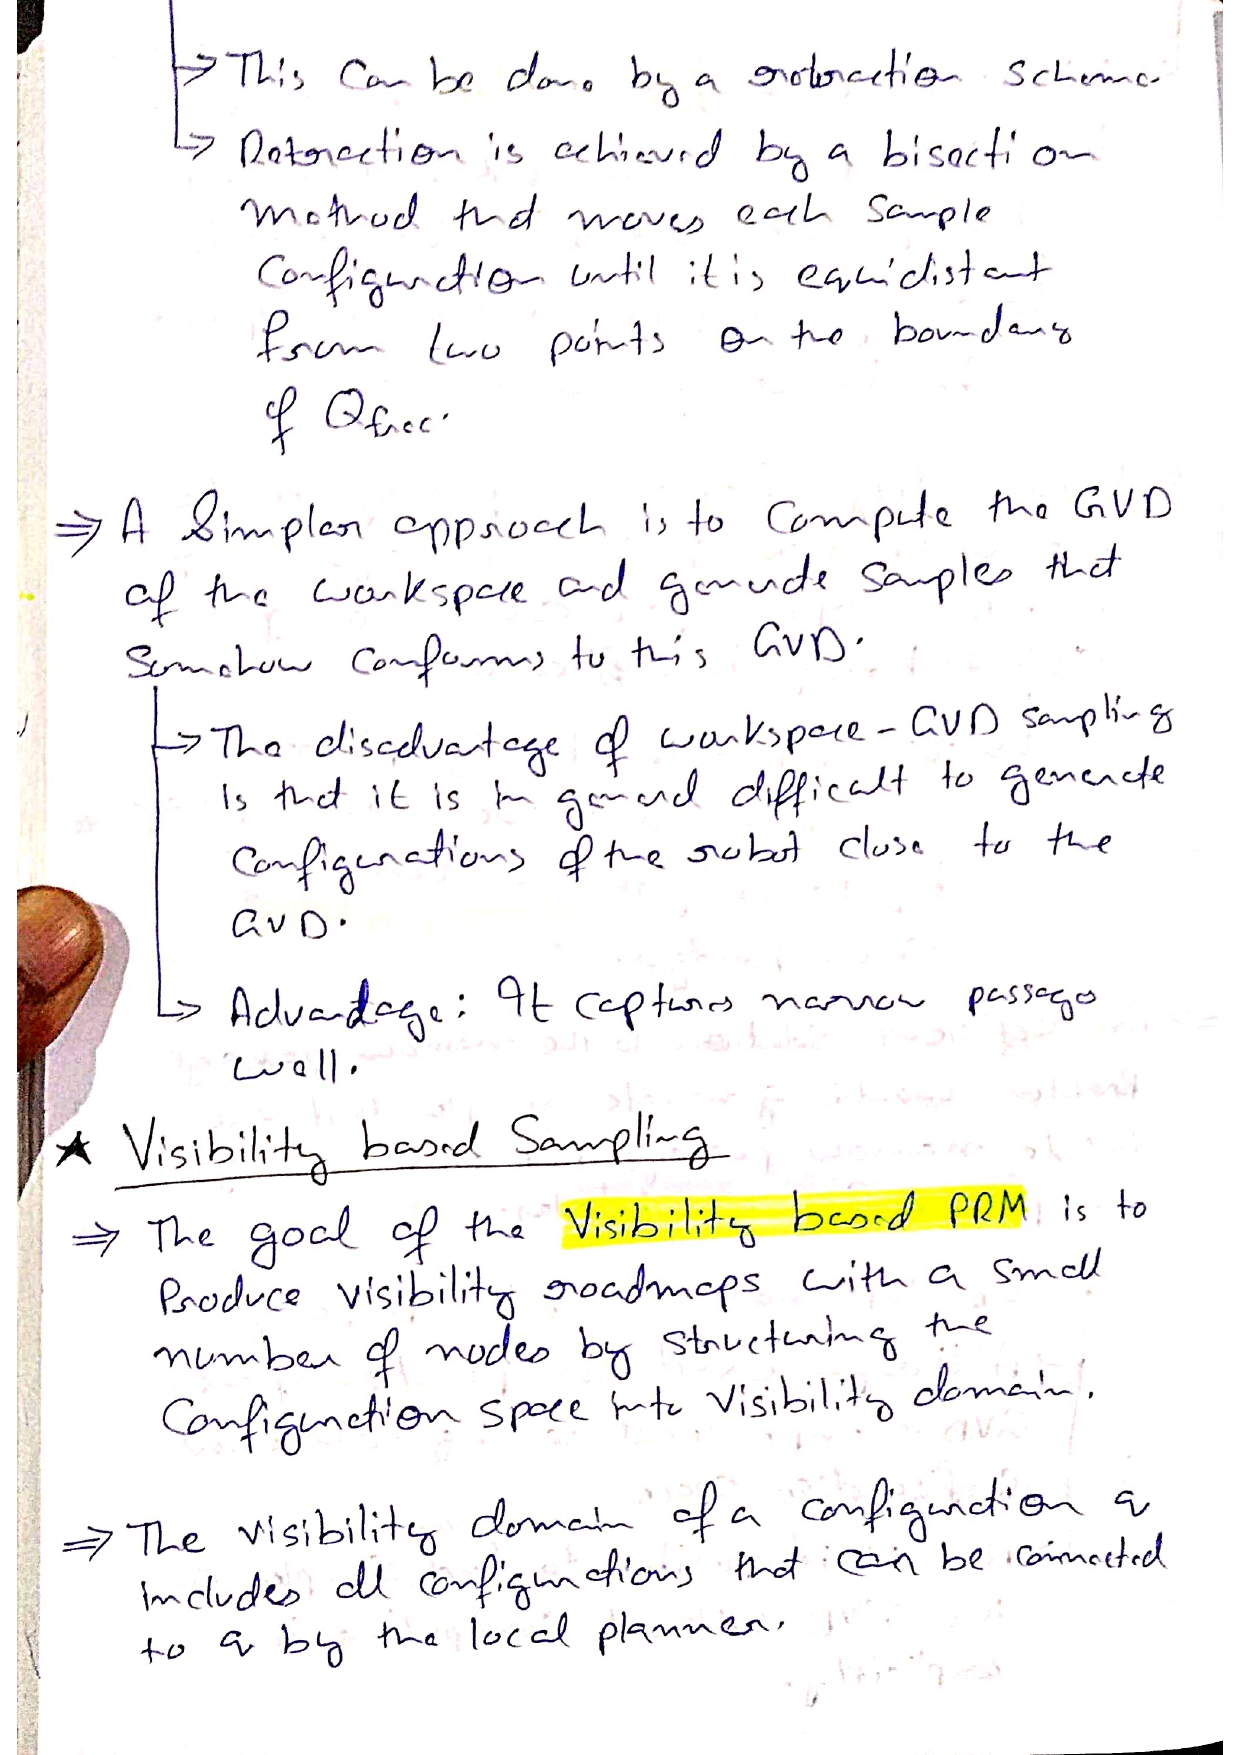 → This can be done by a retraction scheme.
→ Retraction is achieved by a bisection
method that moves each sample
configuration until it is equidistant
from two points on the boundary
of Qfree.
⇒ A simpler approach is to compute the GVD
of the workspace and generate samples that
somehow conforms to this GVD.
→ The disadvantage of workspace-GVD sampling
is that it is in general difficult to generate
configurations of the robot close to the
GVD.
→ Advantage: It captures narrow passage
well.
★ Visibility based Sampling
⇒ The goal of the Visibility based PRM is to
Produce visibility roadmaps with a small
number of nodes by structuring the
Configuration space into visibility domain.
⇒ The visibility domain of a configuration q
includes all configurations that can be connected
to q by the local planner.